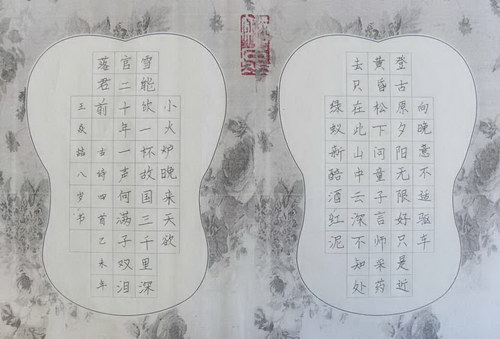 向晚意不适驱车
登古原夕阳无限好只是近
黄昏松下问童子言师采药
去只在此山中云深不知处
绿蚁新醅酒红泥
小火炉晚来天欲
雪能饮一杯故国三千里深
宫二十年一声何满子双泪
落君前 古诗四首 未年
王 八岁书